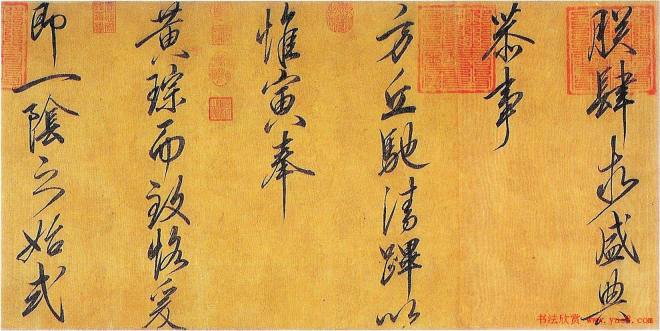 朕肆求盛典
恭事
方丘馳清蹕以
惟寅奉
黃琮而致恪爰
即一陰之始式
书法欣赏 www.yac8.com